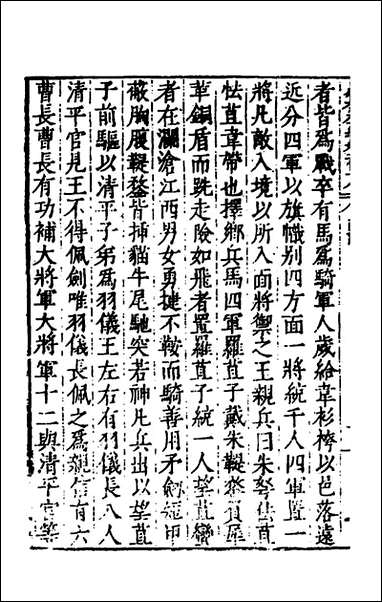 者皆爲戰卒有馬爲騎軍人歲給韋衫袴以邑落遠
近分四軍以旗幟别四方面一將統千人四軍置一
將凡敵入境以所入面將禦之王親兵曰朱弩佉苴
佉苴韋帶也擇鄉兵爲四軍羅苴子戴朱鞮鍪負犀
革銅盾而跣走險如飛百置羅苴子統一人望苴蠻
者在瀾滄江西男女勇捷不鞍而騎善用矛劒短甲
蔽胸腹鞮鍪皆挿猫牛尾馳突若神凡兵出以望苴
子前驅以清平子弟爲羽儀王左右有羽儀長八人
清平官見王不得佩劍唯羽儀長佩之爲親信有六
曹長曹長有功補大將軍大將軍十二與清平官等